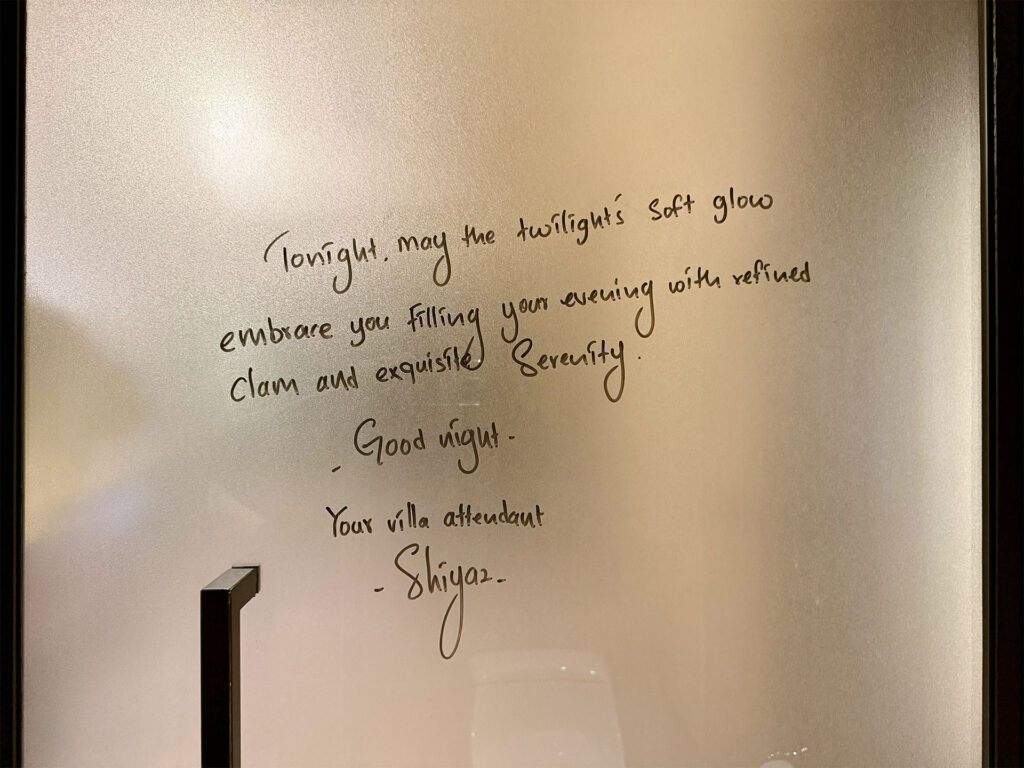 Tonight, may the twilight's soft glow
embrace you filling your evening with refined
clam and exquisite Serenity.
- Good night -
Your villa attendant
- Shiyaz -